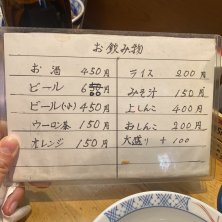 お飲み物
お酒 450円
ビール 円
ビール(小) 450円
ウーロン茶 150円
オレンジ 150円
ライス 200円
みそ汁 150円
上しんこ 400円
おしんこ 200円
大盛り + 100